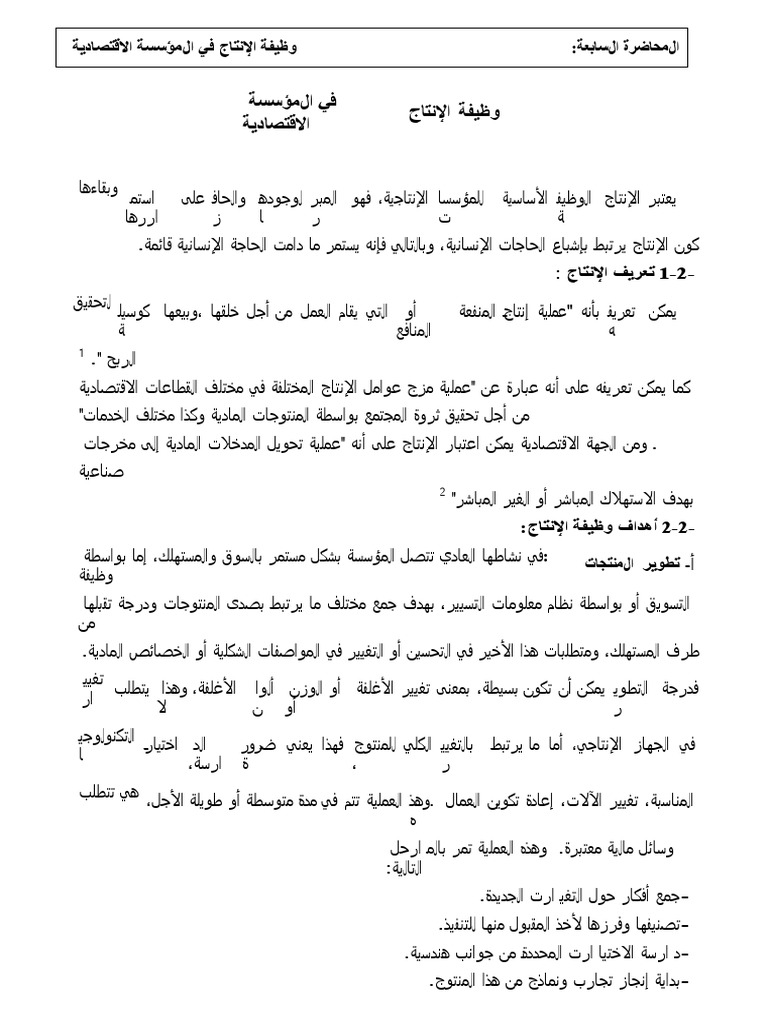 المحاضرة السابعة: وظيفة الإنتاج في المؤسسة الاقتصادية
وظيفة الإنتاج في المؤسسة الاقتصادية
يعتبر الإنتاج الوظيفة الأساسية للمؤسسات الإنتاجية، فهو المبرر لوجودها والحافز على استمرارها وبقاءها
كون الإنتاج يرتبط بإشباع الحاجات الإنسانية، وبالتالي فإنه يستمر ما دامت الحاجة الإنسانية قائمة.
1-2- تعريف الإنتاج :
يمكن تعريفه بأنه "عملية إنتاج المنفعة أو المنافع التي يقام العمل من أجل خلقها ،وبيعها كوسيلة لتحقيق
الربح ". 1
كما يمكن تعريفه على أنه عبارة عن "عملية مزج عوامل الإنتاج المختلفة في مختلف القطاعات الاقتصادية
من أجل تحقيق ثروة المجتمع بواسطة المنتوجات المادية وكذا مختلف الخدمات"
. ومن الجهة الاقتصادية يمكن اعتبار الإنتاج على أنه "عملية تحويل المدخلات المادية إلى مخرجات
صناعية
بهدف الاستهلاك المباشر أو الغير المباشر" 2
2-2- أهداف وظيفة الإنتاج:
أ- تطوير المنتجات :في نشاطها العادي تتصل المؤسسة بشكل مستمر بالسوق والمستهلك، إما بواسطة
وظيفة
التسويق أو بواسطة نظام معلومات التسيير، بهدف جمع مختلف ما يرتبط بصدى المنتوجات ودرجة تقبلها
من
طرف المستهلك، ومتطلبات هذا الأخير في التحسين أو التغيير في المواصفات الشكلية أو الخصائص المادية.
فدرجة التطوير يمكن أن تكون بسيطة، بمعنى تغيير الأغلفة أو الوزن أو ألوان الأغلفة، وهذا لا يتطلب تغييرا
في الجهاز الإنتاجي، أما ما يرتبط بالتغيير الكلي للمنتوج، فهذا يعني ضرورة الدارسة، اختيار- التكنولوجيا
المناسبة، تغيير الآلات، إعادة تكوين العمال .وهذه العملية تتم في مدة متوسطة أو طويلة الأجل، هي تتطلب
وسائل مالية معتبرة. وهذه العملية تمر بالم ارحل
التالية:
-جمع أفكار حول التغي ارت الجديدة.
-تصنيفها وفرزها لأخذ المقبول منها للتنفيذ.
-د ارسة الاختيا ارت المحددة من جوانب هندسية.
-بداية إنجاز تجارب ونماذج من هذا المنتوج.